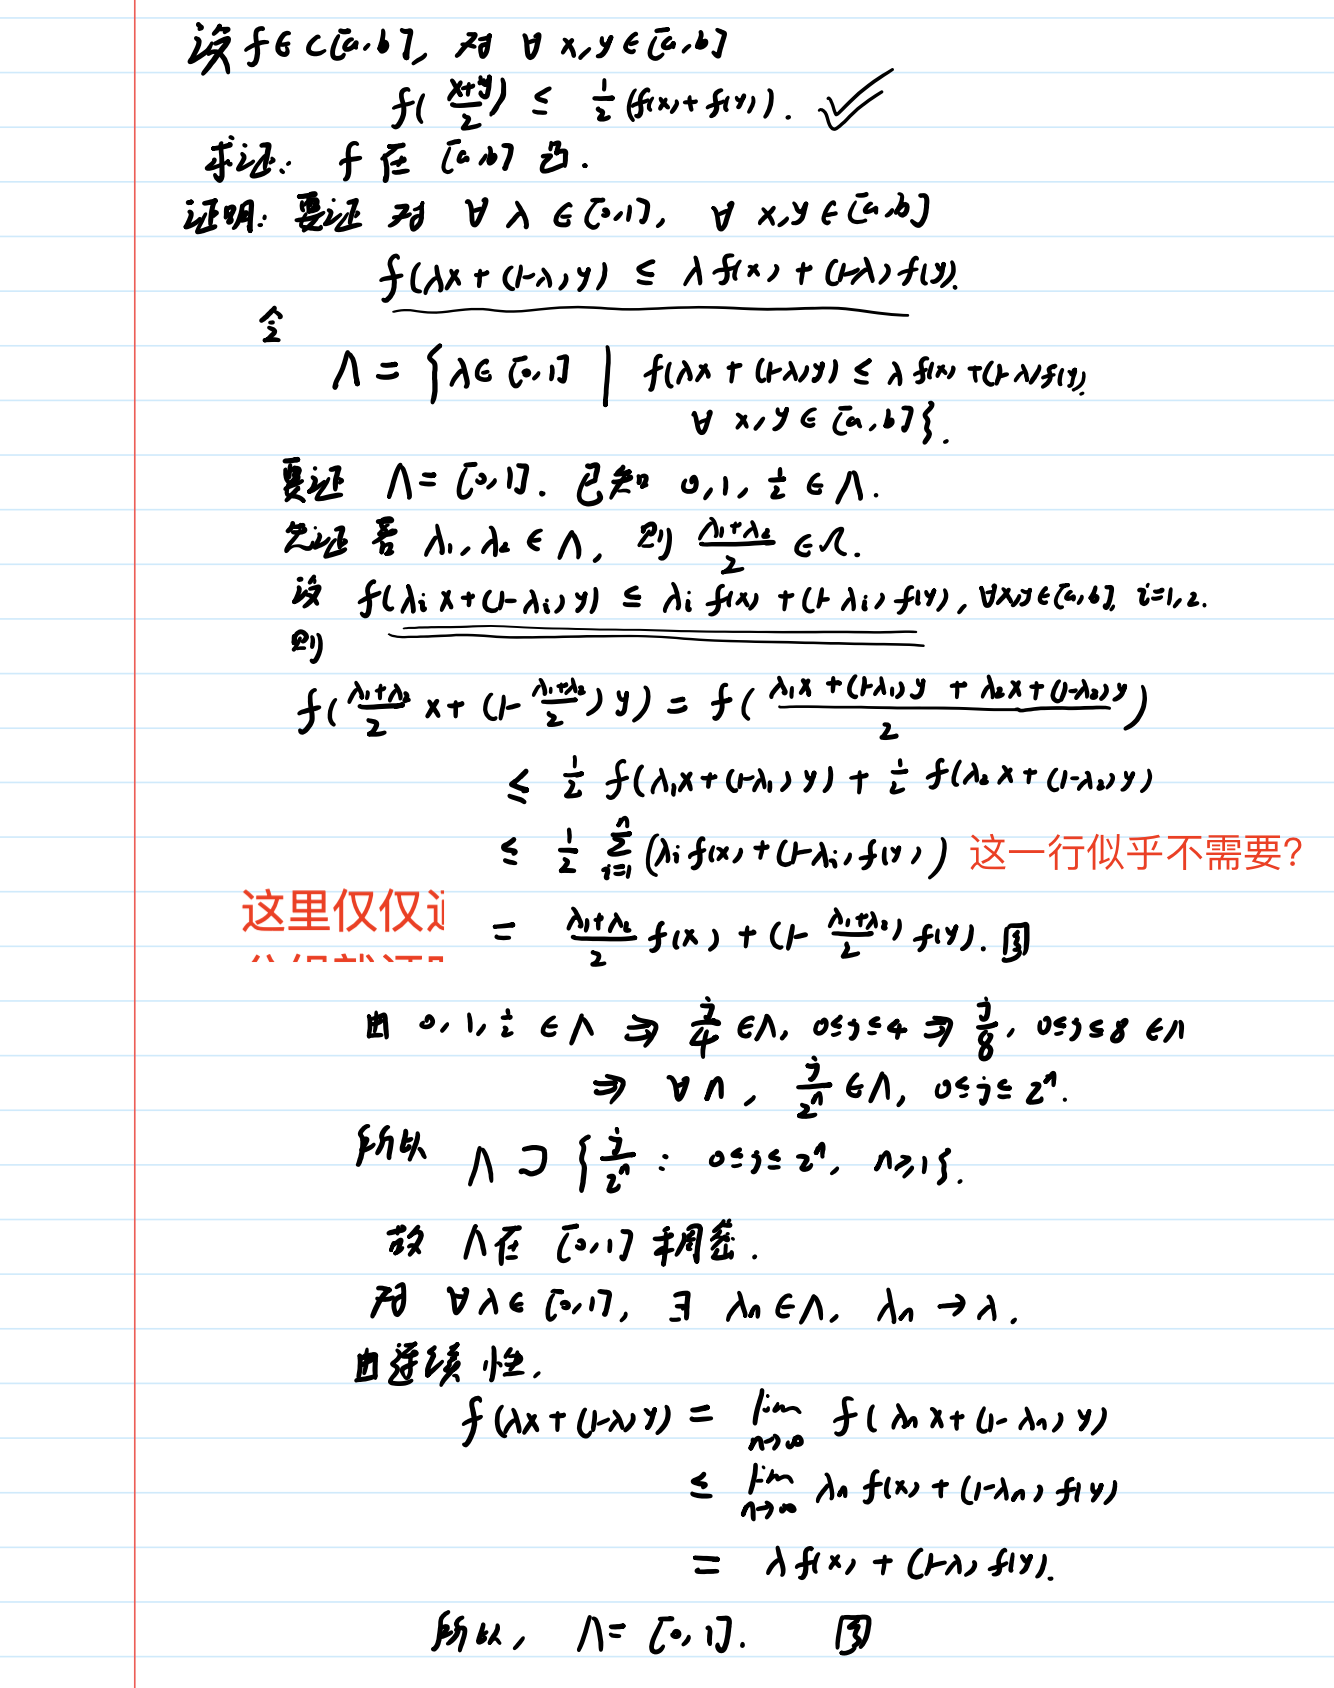 设 f∈C[a,b], 对 ∀ x,y∈[a,b]
f((x+y)/2) ≤ 1/2 (f(x)+f(y)).
求证: f 在 [a,b] 凸.
证明: 要证 对 ∀ λ ∈[0,1], ∀ x,y∈[a,b]
f(λx+(1-λ)y) ≤ λf(x)+(1-λ)f(y).
令
Λ = {λ∈[0,1] | f(λx+(1-λ)y) ≤ λf(x)+(1-λ)f(y),
∀ x,y∈[a,b]}.
要证 Λ=[0,1]. 已知 0,1,1/2 ∈Λ.
先证 若 λ₁,λ₂∈Λ, 则 (λ₁+λ₂)/2 ∈Λ.
设 f(λᵢx+(1-λᵢ)y) ≤ λᵢf(x)+(1-λᵢ)f(y), ∀x,y∈[a,b], i=1,2.
则
f((λ₁+λ₂)/2 x+(1-(λ₁+λ₂)/2)y) = f((λ₁x+(1-λ₁)y+λ₂x+(1-λ₂)y)/2)
≤ 1/2 f(λ₁x+(1-λ₁)y)+1/2 f(λ₂x+(1-λ₂)y)
≤ 1/2 Σ_{i=1}^{n} (λᵢf(x)+(1-λᵢ)f(y)) 这一行似乎不需要?
这里仅仅
= (λ₁+λ₂)/2 f(x)+(1-(λ₁+λ₂)/2)f(y).
由 0,1,1/2 ∈Λ ⇒ j/4 ∈Λ, 0≤j≤4 ⇒ j/8, 0≤j≤8 ∈Λ
⇒ ∀ n, j/2ⁿ ∈Λ, 0≤j≤2ⁿ.
所以 Λ ⊃ {j/2ⁿ : 0≤j≤2ⁿ, n≥1}.
故 Λ在 [0,1] 稠密.
对 ∀λ∈[0,1], ∃ λₙ∈Λ, λₙ→λ.
由连续性,
f(λx+(1-λ)y) = lim_{n→∞} f(λₙx+(1-λₙ)y)
≤ lim_{n→∞} λₙf(x)+(1-λₙ)f(y)
= λf(x)+(1-λ)f(y).
所以, Λ=[0,1].